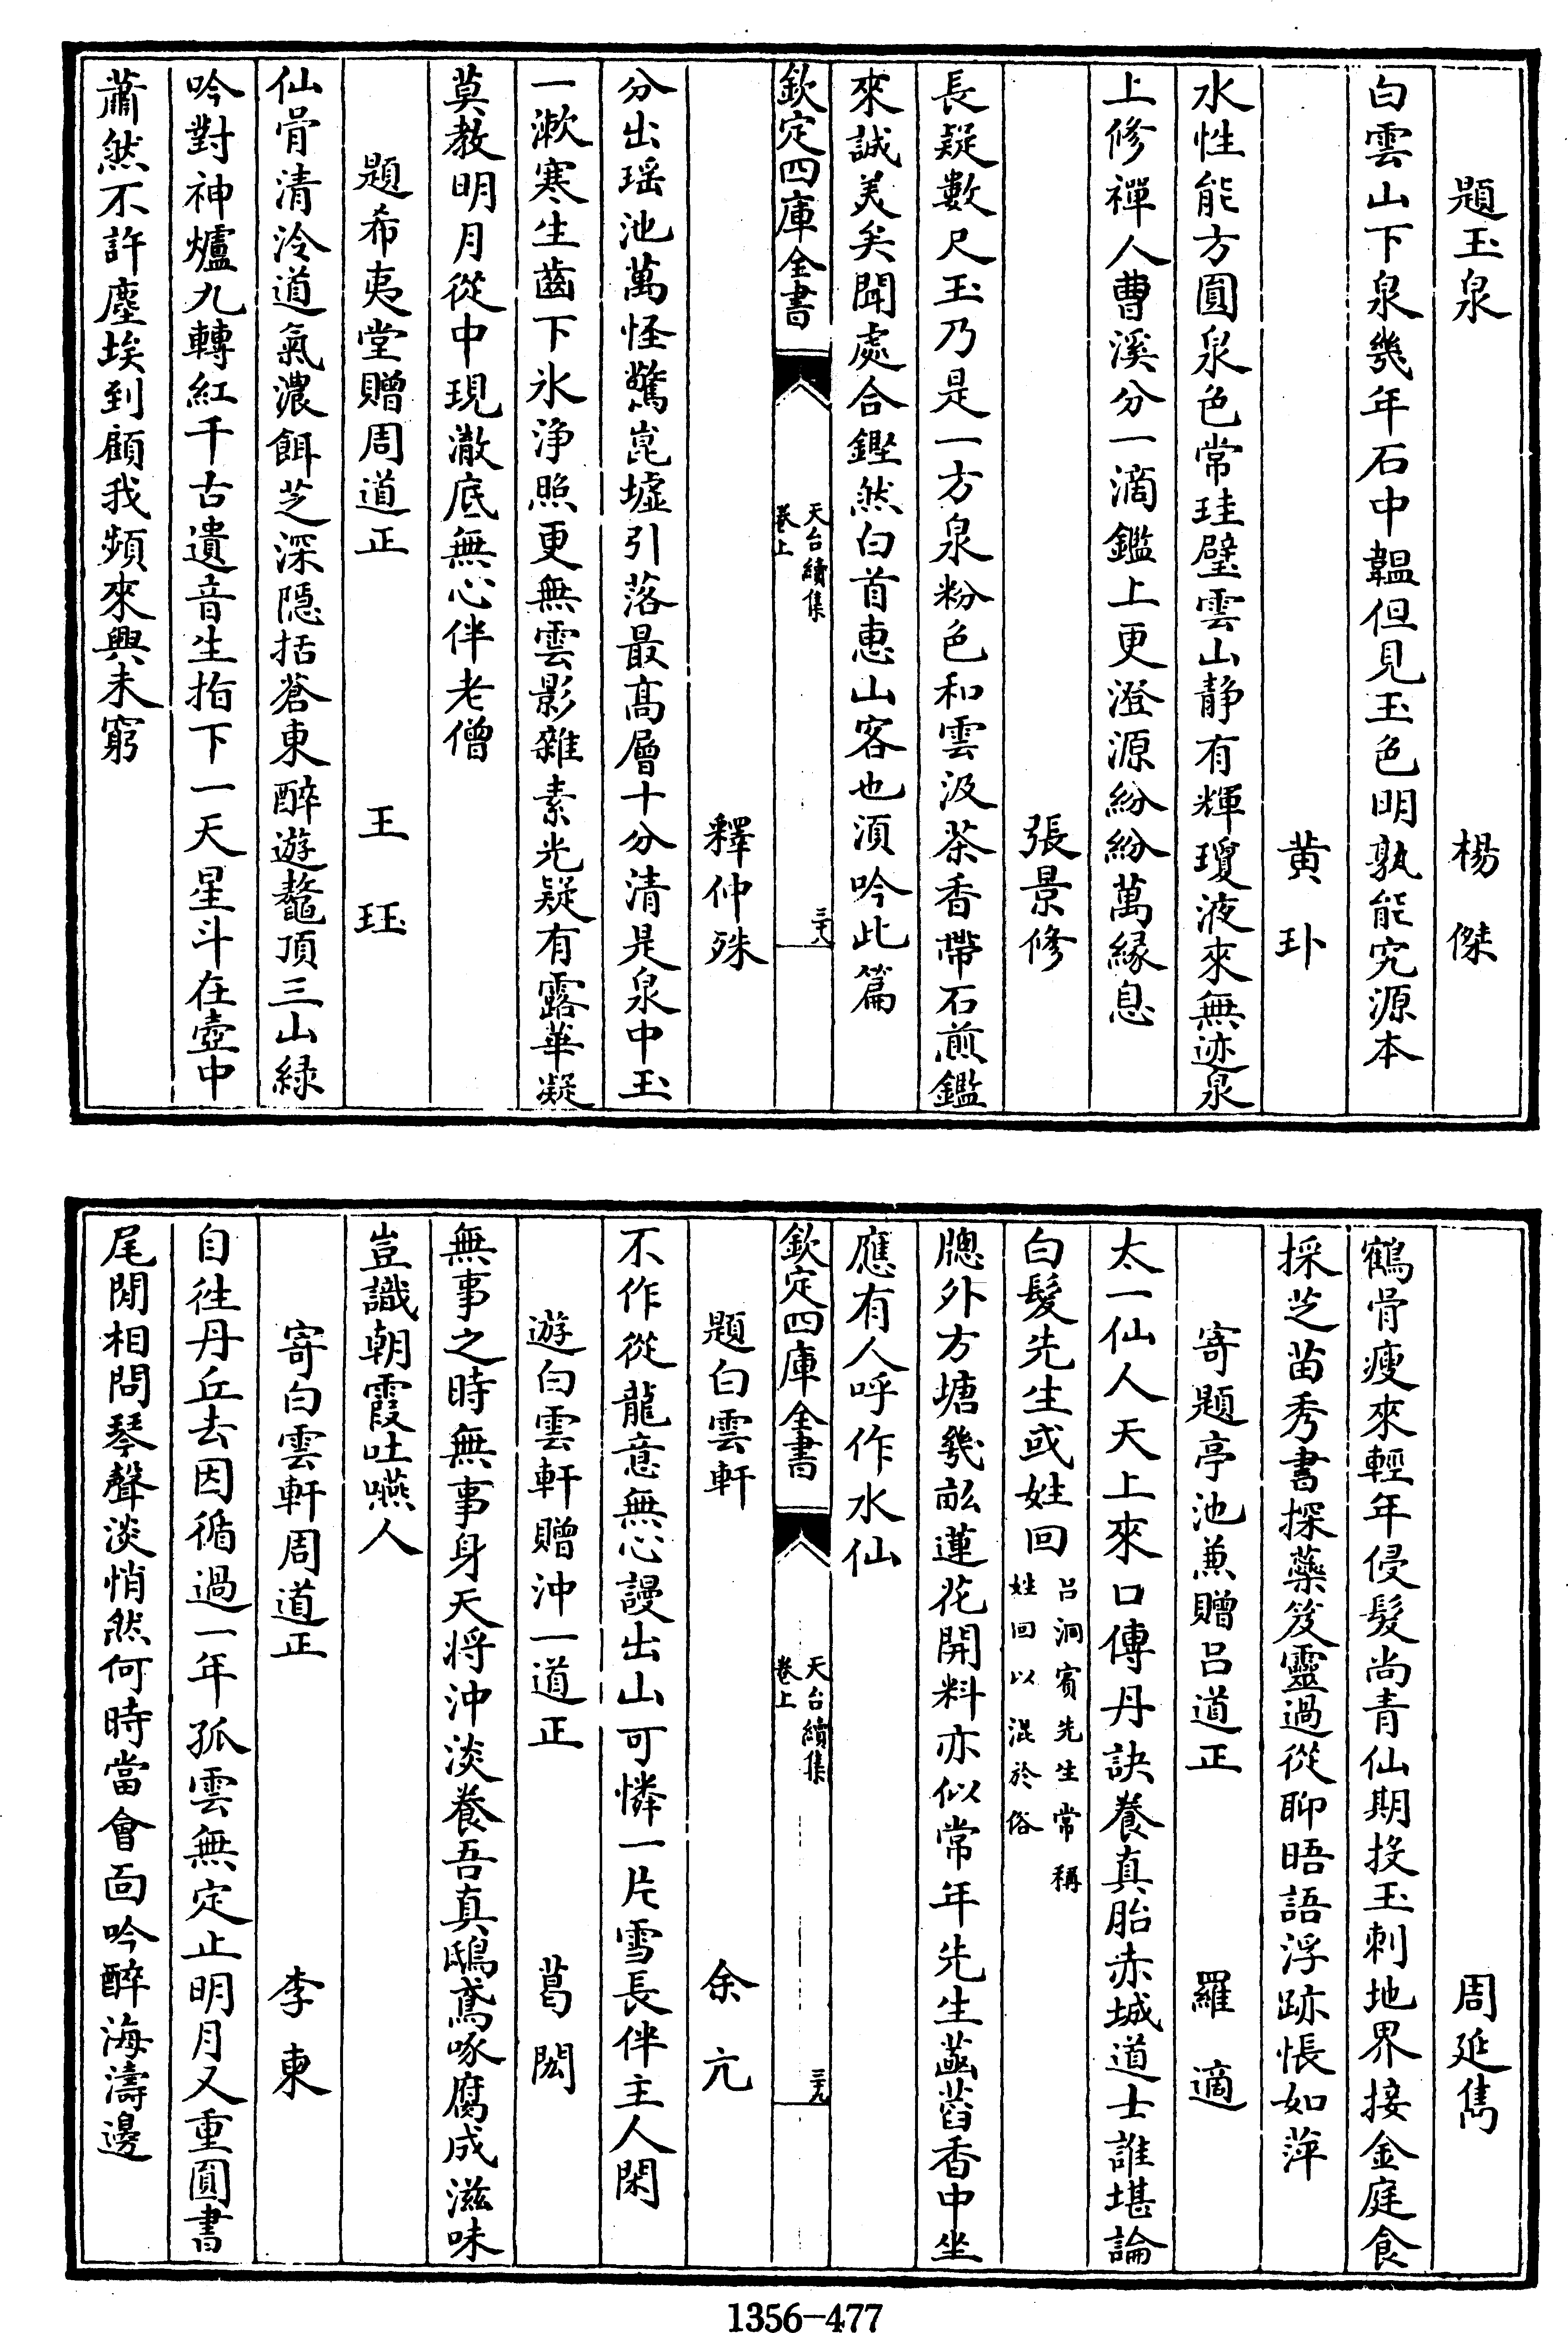 題玉泉　楊傑
白雲山下泉幾年石中韞但見玉色明孰能究源本
黄𤣩
水性能方圓泉色常珪璧雲山静有輝瓊液來無迹泉
上修禪人曹溪分一滴鑑上更澄源紛紛萬緣息
張景修
長疑數尺玉乃是一方泉粉色和雲汲茶香帶石煎鑑
來誠美矣聞處合鏗然白首惠山客也須吟此篇
欽定四庫全書　天台續集卷上　三十八
釋仲殊
分出瑶池萬怪驚崑墟引落最高層十分清是泉中玉
一漱寒生齒下氷浄照更無雲影雜素光疑有露華凝
莫教明月從中現澈底無心伴老僧
題希夷堂贈周道正　王珏
仙骨清泠道氣濃餌芝深隠括蒼東醉遊鼇頂三山緑
吟對神爐九轉紅千古遺音生指下一天星斗在壺中
蕭然不許塵埃到顧我頻來興未窮
周延雋
鶴骨瘦來輕年侵髮尚青仙期投玉刺地界接金庭食
採芝苗秀書探藥笈靈過從聊晤語浮跡悵如萍
寄題亭池兼贈吕道正　羅適
太一仙人天上來口傳丹訣養真胎赤城道士誰堪論
白髮先生或姓回吕洞賓先生常稱姓回以混於俗
牕外方塘幾畝蓮花開料亦似常年先生菡萏香中坐
應有人呼作水仙
欽定四庫全書　天台續集卷上　三十九
題白雲軒　余亢
不作從龍意無心謾出山可憐一片雪長伴主人閑
遊白雲軒贈沖一道正　葛閎
無事之時無事身天將沖淡養吾真鴟鳶啄腐成滋味
豈識朝霞吐嚥人
寄白雲軒周道正　李東
自往丹丘去因循過一年孤雲無定止明月又重圓書
尾閒相問琴聲淡悄然何時當會面吟醉海濤邊
1356-477